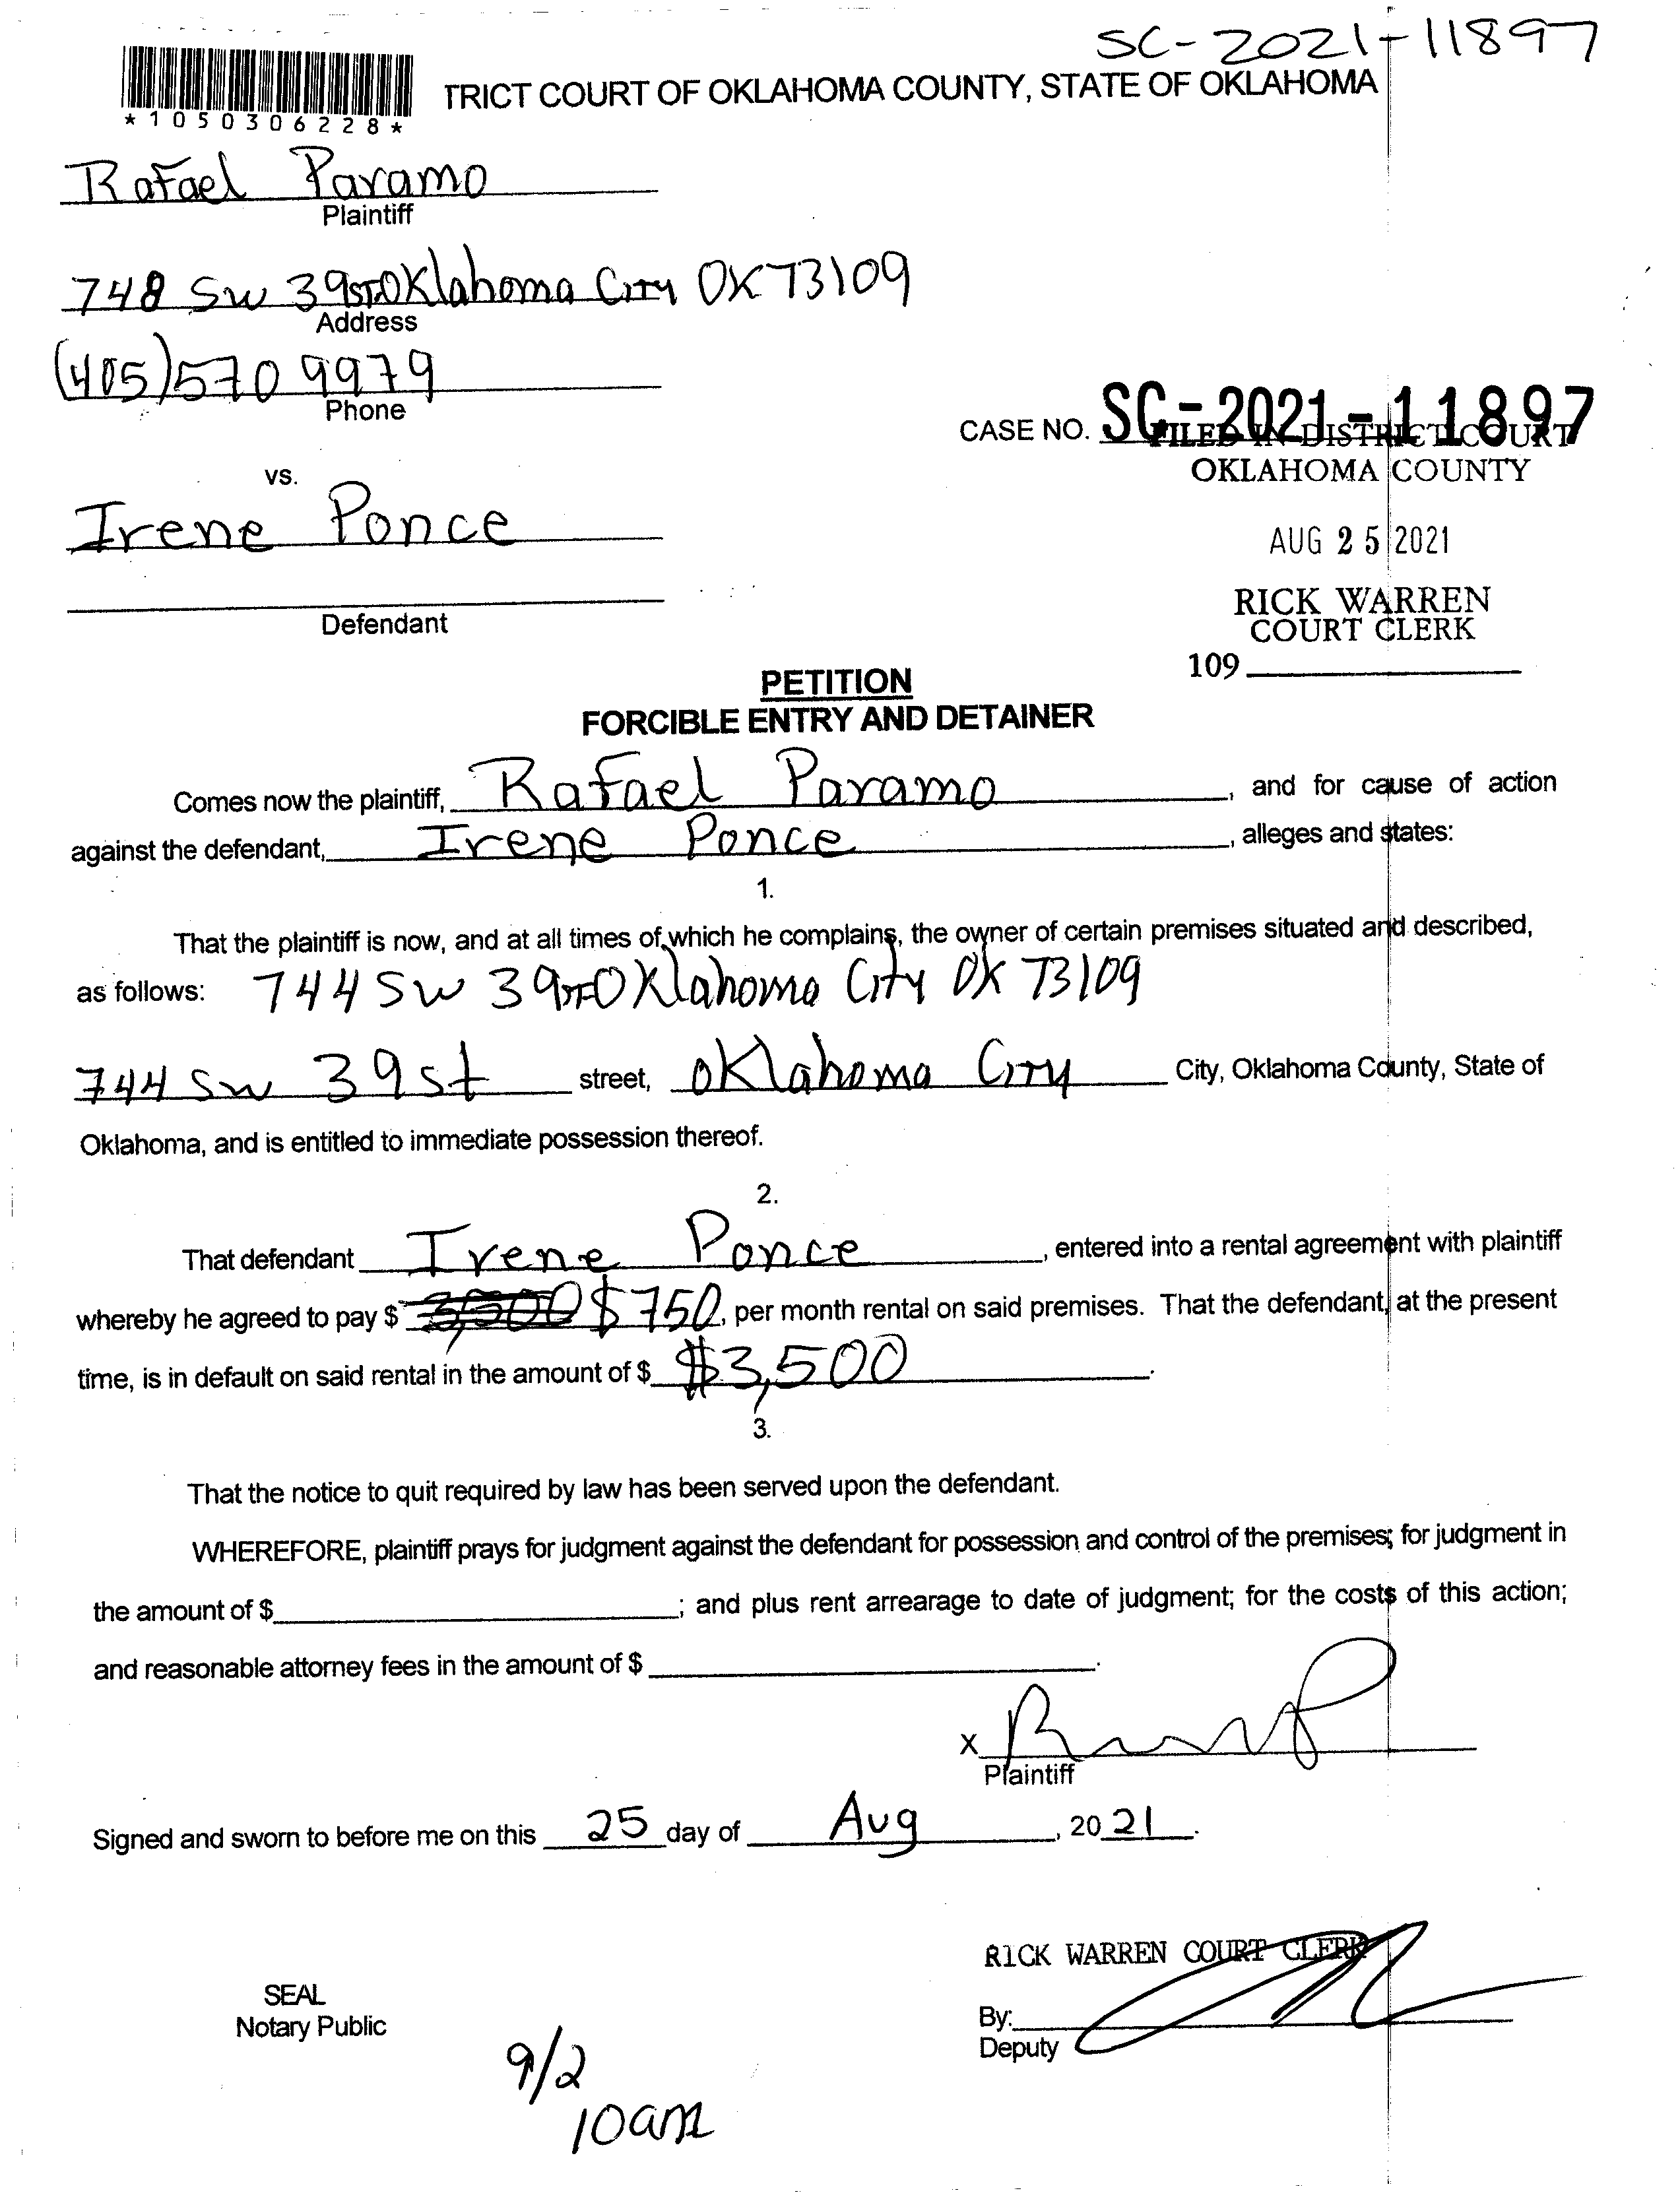 SC-2021-11897
TRICT COURT OF OKLAHOMA COUNTY, STATE OF OKLAHOMA
*1050306228*
Rafael Paramo
Plaintiff
748 SW 39ST Oklahoma City OK 73109
Address
(405)570 9979
Phone
CASE NO. SC-2021-11897
FILED IN DISTRICT COURT
OKLAHOMA COUNTY
vs.
Irene Ponce
AUG 25 2021
Defendant
RICK WARREN
COURT CLERK
109
PETITION
FORCIBLE ENTRY AND DETAINER
Comes now the plaintiff, Rafael Paramo, and for cause of action
against the defendant, Irene Ponce, alleges and states:
1.
That the plaintiff is now, and at all times of which he complains, the owner of certain premises situated and described,
as follows: 744 SW 39ST Oklahoma City OK 73109
744 SW 39 st street, Oklahoma City City, Oklahoma County, State of
Oklahoma, and is entitled to immediate possession thereof.
2.
That defendant Irene Ponce, entered into a rental agreement with plaintiff
whereby he agreed to pay $ 3,500 $750, per month rental on said premises. That the defendant, at the present
time, is in default on said rental in the amount of $ $3,500.
3.
That the notice to quit required by law has been served upon the defendant.
WHEREFORE, plaintiff prays for judgment against the defendant for possession and control of the premises; for judgment in
the amount of $; and plus rent arrearage to date of judgment; for the costs of this action;
and reasonable attorney fees in the amount of $.
X
Plaintiff
Signed and sworn to before me on this 25 day of Aug, 20 21.
RICK WARREN COURT CLERK
SEAL
Notary Public
By:
Deputy
9/2
10am